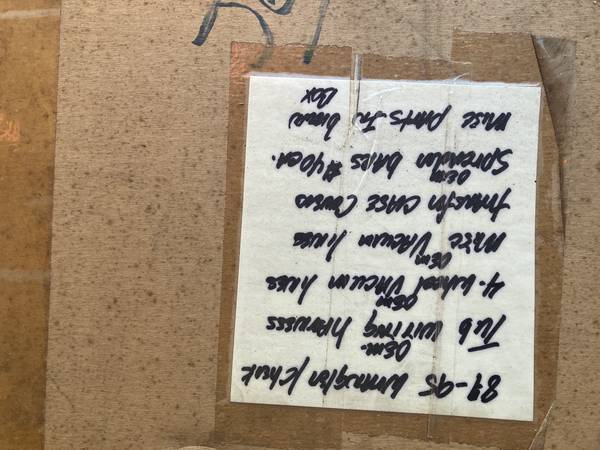 Wrangler
OEM
Tub wiring harness
OEM
4. wheel vacuum lines
OEM
misc vacuum lines
transfer case covers
OEM
spreader bars $40ea.
misc parts in
Box